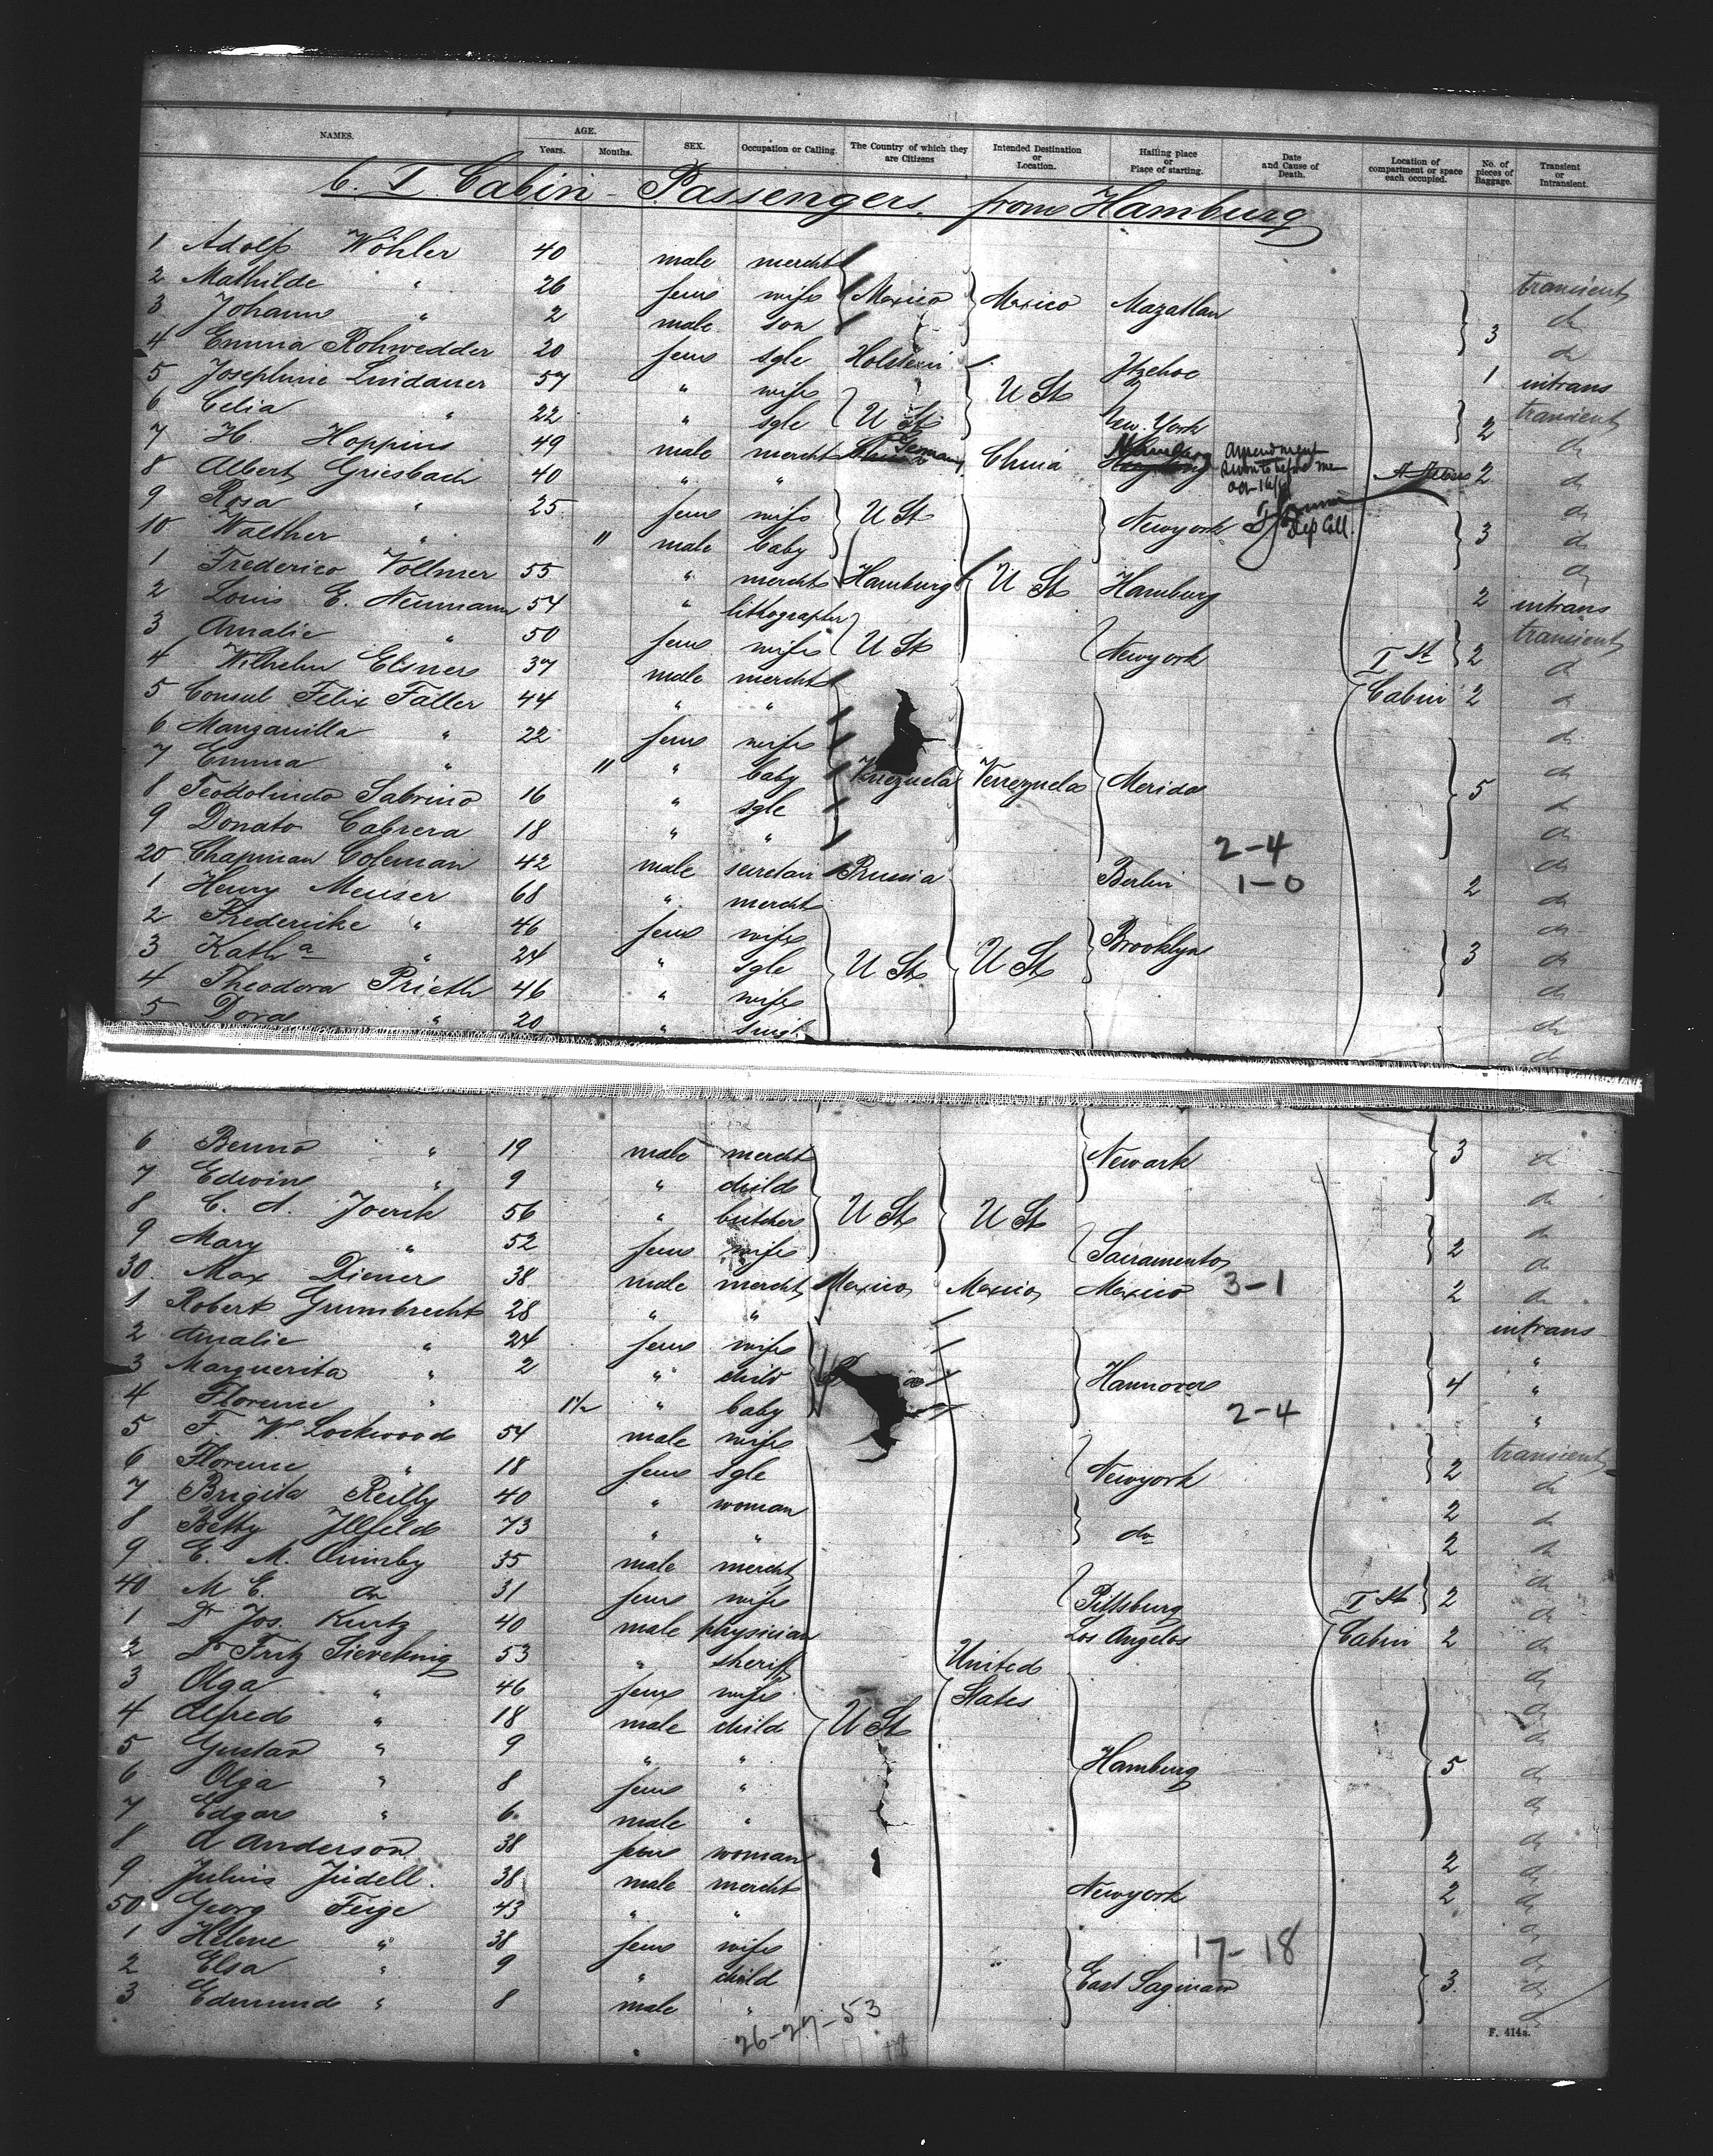 NAMES. AGE. Years. Months. SEX. Occupation or Calling. The Country of which they are Citizens Intended Destination or Location. Hailing place or Place of starting. Date and Cause of Death. Location of compartment or space each occupied. No. of pieces of Baggage. Transient or Intransient.
6. I Cabin - Passengers from Hamburg
1 Adolf Wöhler 40 male mercht
2 Mathilde " 26 fem wife Mexico Mexico Mazatlan transient
3 Johann " 2 male son 3 do
4 Emma Rohwedder 20 fem sgle Holstein Itzehoe do
5 Josephine Lindauer 57 " wife U St 1 intrans
6 Celia " 22 " sgle U St New-York 2 transient
7 H. Hoppins 49 male mercht Germany China Hamburg Amendment sworn to before me do
8 Albert Griesbach 40 " " 2 do
9 Rosa " 25 fem wife U St Newyork Dep Coll. do
10 Walther " 11 male baby 3 do
1 Frederico Vollmer 55 " mercht Hamburg U St Hamburg do
2 Louis E. Neumann 54 " lithographer 2 intrans
3 Amalie " 50 fem wife U St Newyork I St 2 transient
4 Wilhelm Elsner 37 male mercht do
5 Consul Felix Faller 44 " " Cabin 2 do
6 Manzanilla " 22 fem wife do
7 Emma " 11 " baby Venezuela Venezuela Merida do
8 Teodolindo Sabrino 16 " sgle 5 do
9 Donato Cabrera 18 " " 2-4 do
20 Chapman Coleman 42 male secretair Prussia Berlin 1-0 do
1 Henry Meuser 68 " mercht 2 do
2 Fredericke " 46 fem wife Brooklyn do
3 Kath a " 24 " sgle U St U St 3 do
4 Theodora Prieth 46 " wife do
5 Dora " 20 " singl do
do
6 Benno " 19 male mercht Newark 3 do
7 Edwin " 9 " child do
8 C. A. Joerk 56 " butcher U St U St do
9 Mary " 52 fem wife Sacramento 2 do
30 Max Diener 38 male mercht Mexico Mexico Mexico 3-1 2 do
1 Robert Grumbrecht 28 " " intrans
2 Amalie " 24 fem wife "
3 Marguerita " 2 " child Hannover 4 "
4 Florence " 1½ " baby 2-4 "
5 F. W. Lockwood 54 male wife transient
6 Florence " 18 fem sgle Newyork 2 do
7 Brigita Reilly 40 " woman 2 do
8 Betty Illfeld 73 " " do 2 do
9 E. M. Quimby 35 male mercht do
40 M E. do 31 fem wife Pittsburg I St 2 do
1 Dr Jos. Kurtz 40 male physician Los Angelos Cabin 2 do
2 Dr Fritz Sieveking 53 " sheriff United do
3 Olga " 46 fem wife States do
4 Alfred " 18 male child U St do
5 Gustav " 9 " " Hamburg do
6 Olga " 8 fem " 5 do
7 Edgar " 6 male " do
8 A Anderson 38 fem woman 2 do
9 Julius Jüdell. 38 male mercht Newyork 2 do
50 Georg Feige 43 " " do
1 Helene " 38 fem wife 17-18 do
2 Elsa " 9 " child East Saginaw 3 do
3 Edmund " 8 male " do
26-27-53
F. 414a.